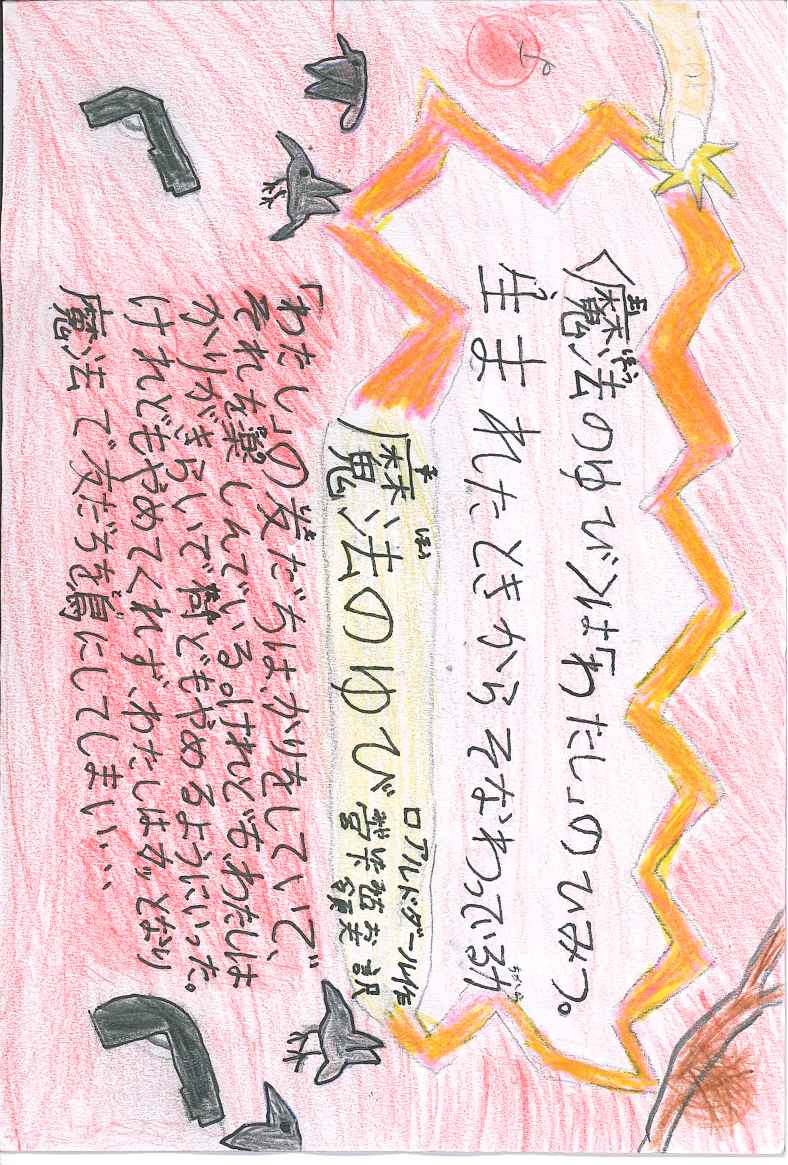 〈魔法のゆび〉は「わたし」のひみつ。
生まれたときからそなわっている力
魔法のゆび
ロアルド・ダール作
宮下嶺夫 訳
「わたし」の友だちは、かりをしていて、
それを楽しんでいる。けれどもわたしは
かりがきらいで何どもやめるようにいった。
けれどもやめてくれず、わたしはカッとなり
魔法で友だちを鳥にしてしまい・・・